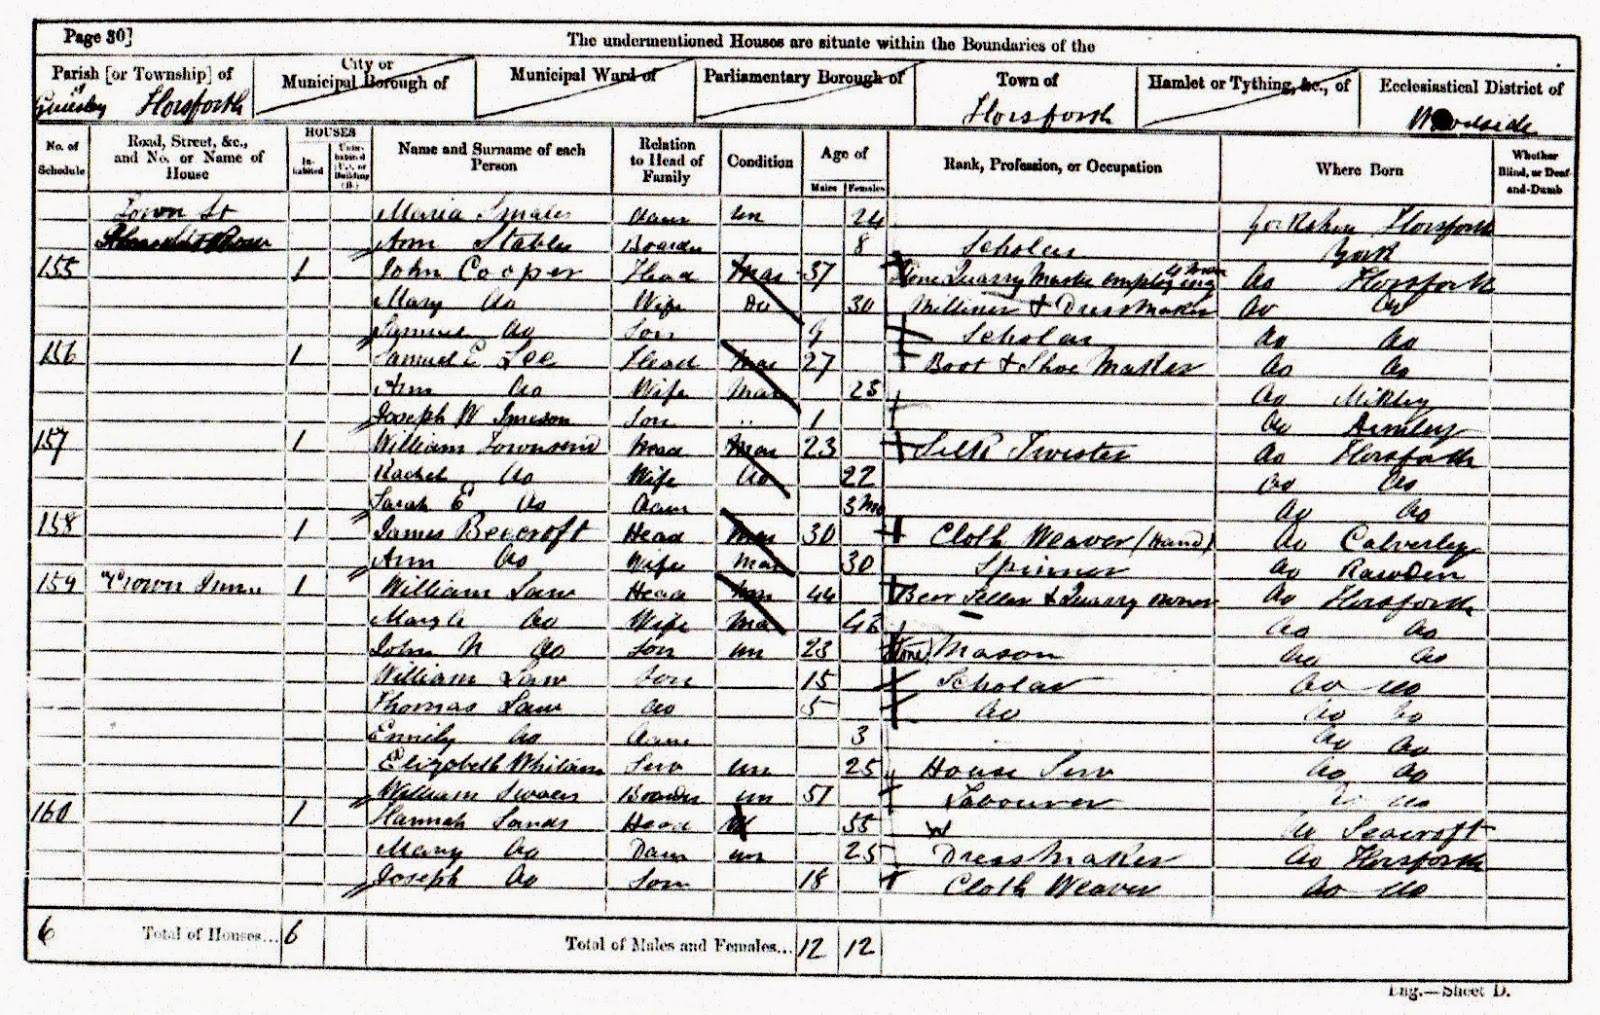 Page 30]
The undermentioned Houses are situate within the Boundaries of the
Parish [or Township] of
City or Municipal Borough of
Municipal Ward of
Parliamentary Borough of
Town of
Hamlet or Tything, &c., of
Ecclesiastical District of
Horsforth
Horsforth
Woodside
No. of Schedule
Road, Street, &c., and No. or Name of House
HOUSES
In-habited
Unin-habited (U.), or Building (B.)
Name and Surname of each Person
Relation to Head of Family
Condition
Age of
Males
Females
Rank, Profession, or Occupation
Where Born
Whether Blind, or Deaf-and-Dumb
Town St Maria Smales Daur Un 24 Yorkshire Horsforth
Ann Boarder 8 Scholar York
155 1 John Cooper Head Mar 37 Stone Quarry Master employing Do Horsforth
Mary Do Wife Do 30 Milliner & Dressmaker Do Do
Samuel Do Son 9 Scholar Do Do
156 1 Samuel E Lee Head Mar 27 Boot & Shoe Maker Do Do
Ann Do Wife Mar 25 Do
Joseph W Imeson Son 1 Do
157 1 William Townsend Head Mar 23 Silk Twister Do Horsforth
Rachel Do Wife Do 22 Do Do
Sarah E Do Daur 3 Mo Do Do
158 1 James Beecroft Head Mar 30 Cloth Weaver (Hand) Do Calverley
Ann Do Wife Mar 30 Spinner Do Rawden
159 "Crown Inn" 1 William Law Head Mar 44 Beer Seller & Quarry owner Do Horsforth
Do Wife Mar Do Do
John N Do Son Un 23 (Stone) Mason Do Do
William Law Son 15 Scholar Do Do
Thomas Law Do 5 Do Do Do
Emily Do Daur 3 Do Do
Elizabeth Serv Un 25 House Serv Do Do
William Boarder Un 51 Labourer Do Do
160 1 Hannah Sands Head W 55 Do Seacroft
Mary Do Daur Un 25 Dressmaker Do Horsforth
Joseph Do Son 18 Cloth Weaver Do Do
6 Total of Houses... 6 Total of Males and Females... 12 12
Eng.—Sheet D.